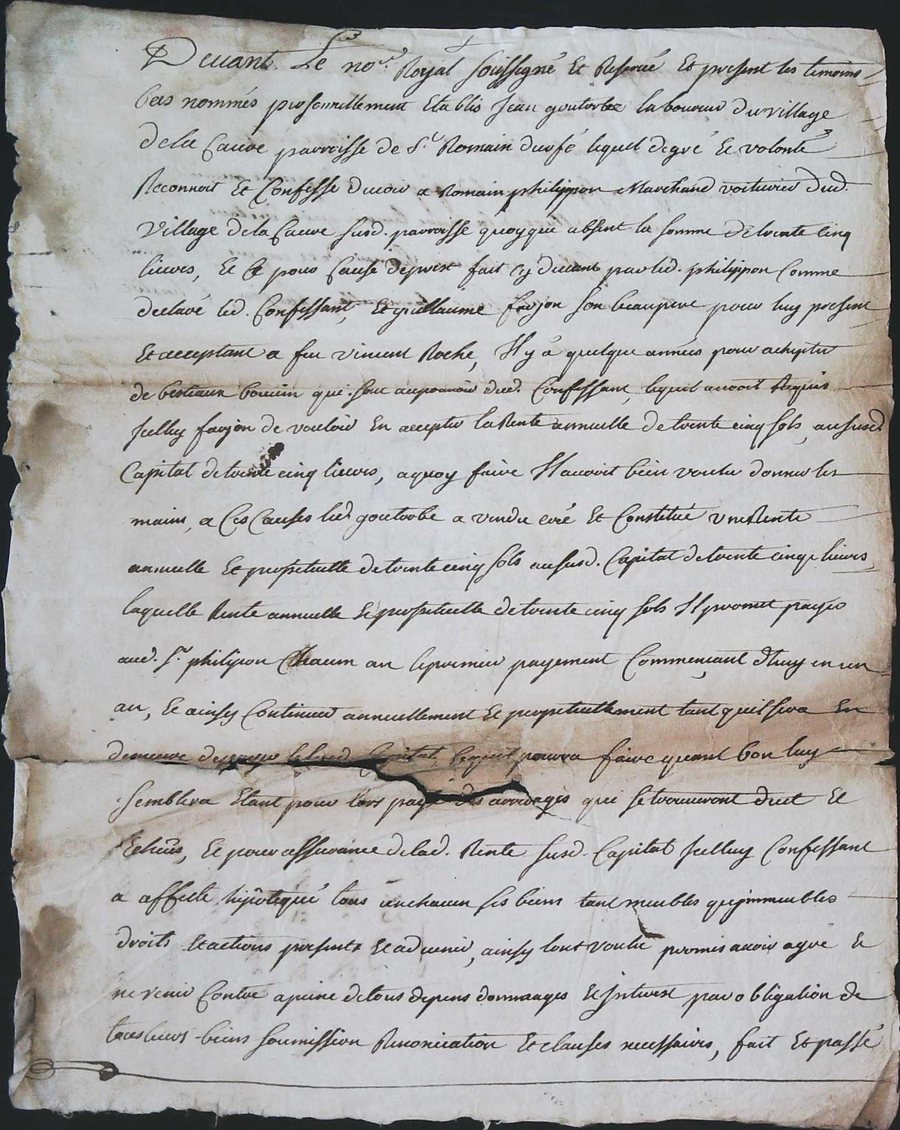 Devant Le no.re Royal soussigné Et Reservé Et present les temoins
bas nommés personnellement Etablis Jean goutorbe laboureur du village
de la Cauve parroisse de St Romain durfé lequel de gré Et volonté
Reconnoit Et Confesse devoir a Romain philippon Marchand voiturier dud.
village de la Cauve susd. parroisse quoyque absent la somme de trente cinq
livres, Et Ce pour Cause de prest fait Cy devant par led. philippon Comme
declaré led. Confessant, Et guillaume farjon son beaupere pour luy present
Et acceptant a feu vincent Roche, Il y a quelque années pour achepter
de bestiaux bovins qui sont au pouvoir dud. Confessant, lequel avoit Requis
Icelluy farjon de vouloir En accepter la Rente annuelle de trente cinq sols, au susd.
Capital de trente cinq livres, a quoy faire Il avoit bien voulu donner les
mains, a Ces Causes led. goutorbe a vendu créé Et Constitué une Rente
annuelle Et perpetuelle de trente cinq sols au susd. Capital de trente cinq livres,
laquelle Rente annuelle Et perpetuelle de trente cinq sols Il promet payer
aud. Sr. philippon Chacun an le premier payement Commencant d'huy en un
an, Et ainsy Continuer annuellement Et perpetuellement tant quil sera En
demeure de payer led. Capital, lequel pourra faire quand bon luy
semblera Etant pour lors payé des arrerages qui se trouveront dues Et
Echues, Et pour assurance de lad. Rente susd. Capital Icelluy Confessant
a affecté hipotequé tous un chacun ses biens tant meubles qu'immeubles
droits Et actions presents Et advenir, ainsy lont voulu promis avoir agré Et
ne venir Contre a peine de tous depens dommages Et Interest par obligation de
tous leurs biens soumission Renonciation Et clauses necessaires, fait Et passé